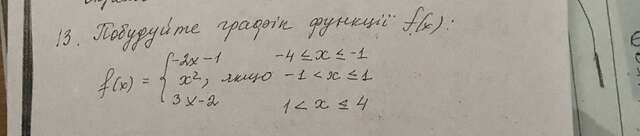 13. Побудуйте графік функції f(x):
-2x-1 -4 ≤ x ≤ -1
f(x) = { x², якщо -1 < x ≤ 1
3x-2 1 < x ≤ 4